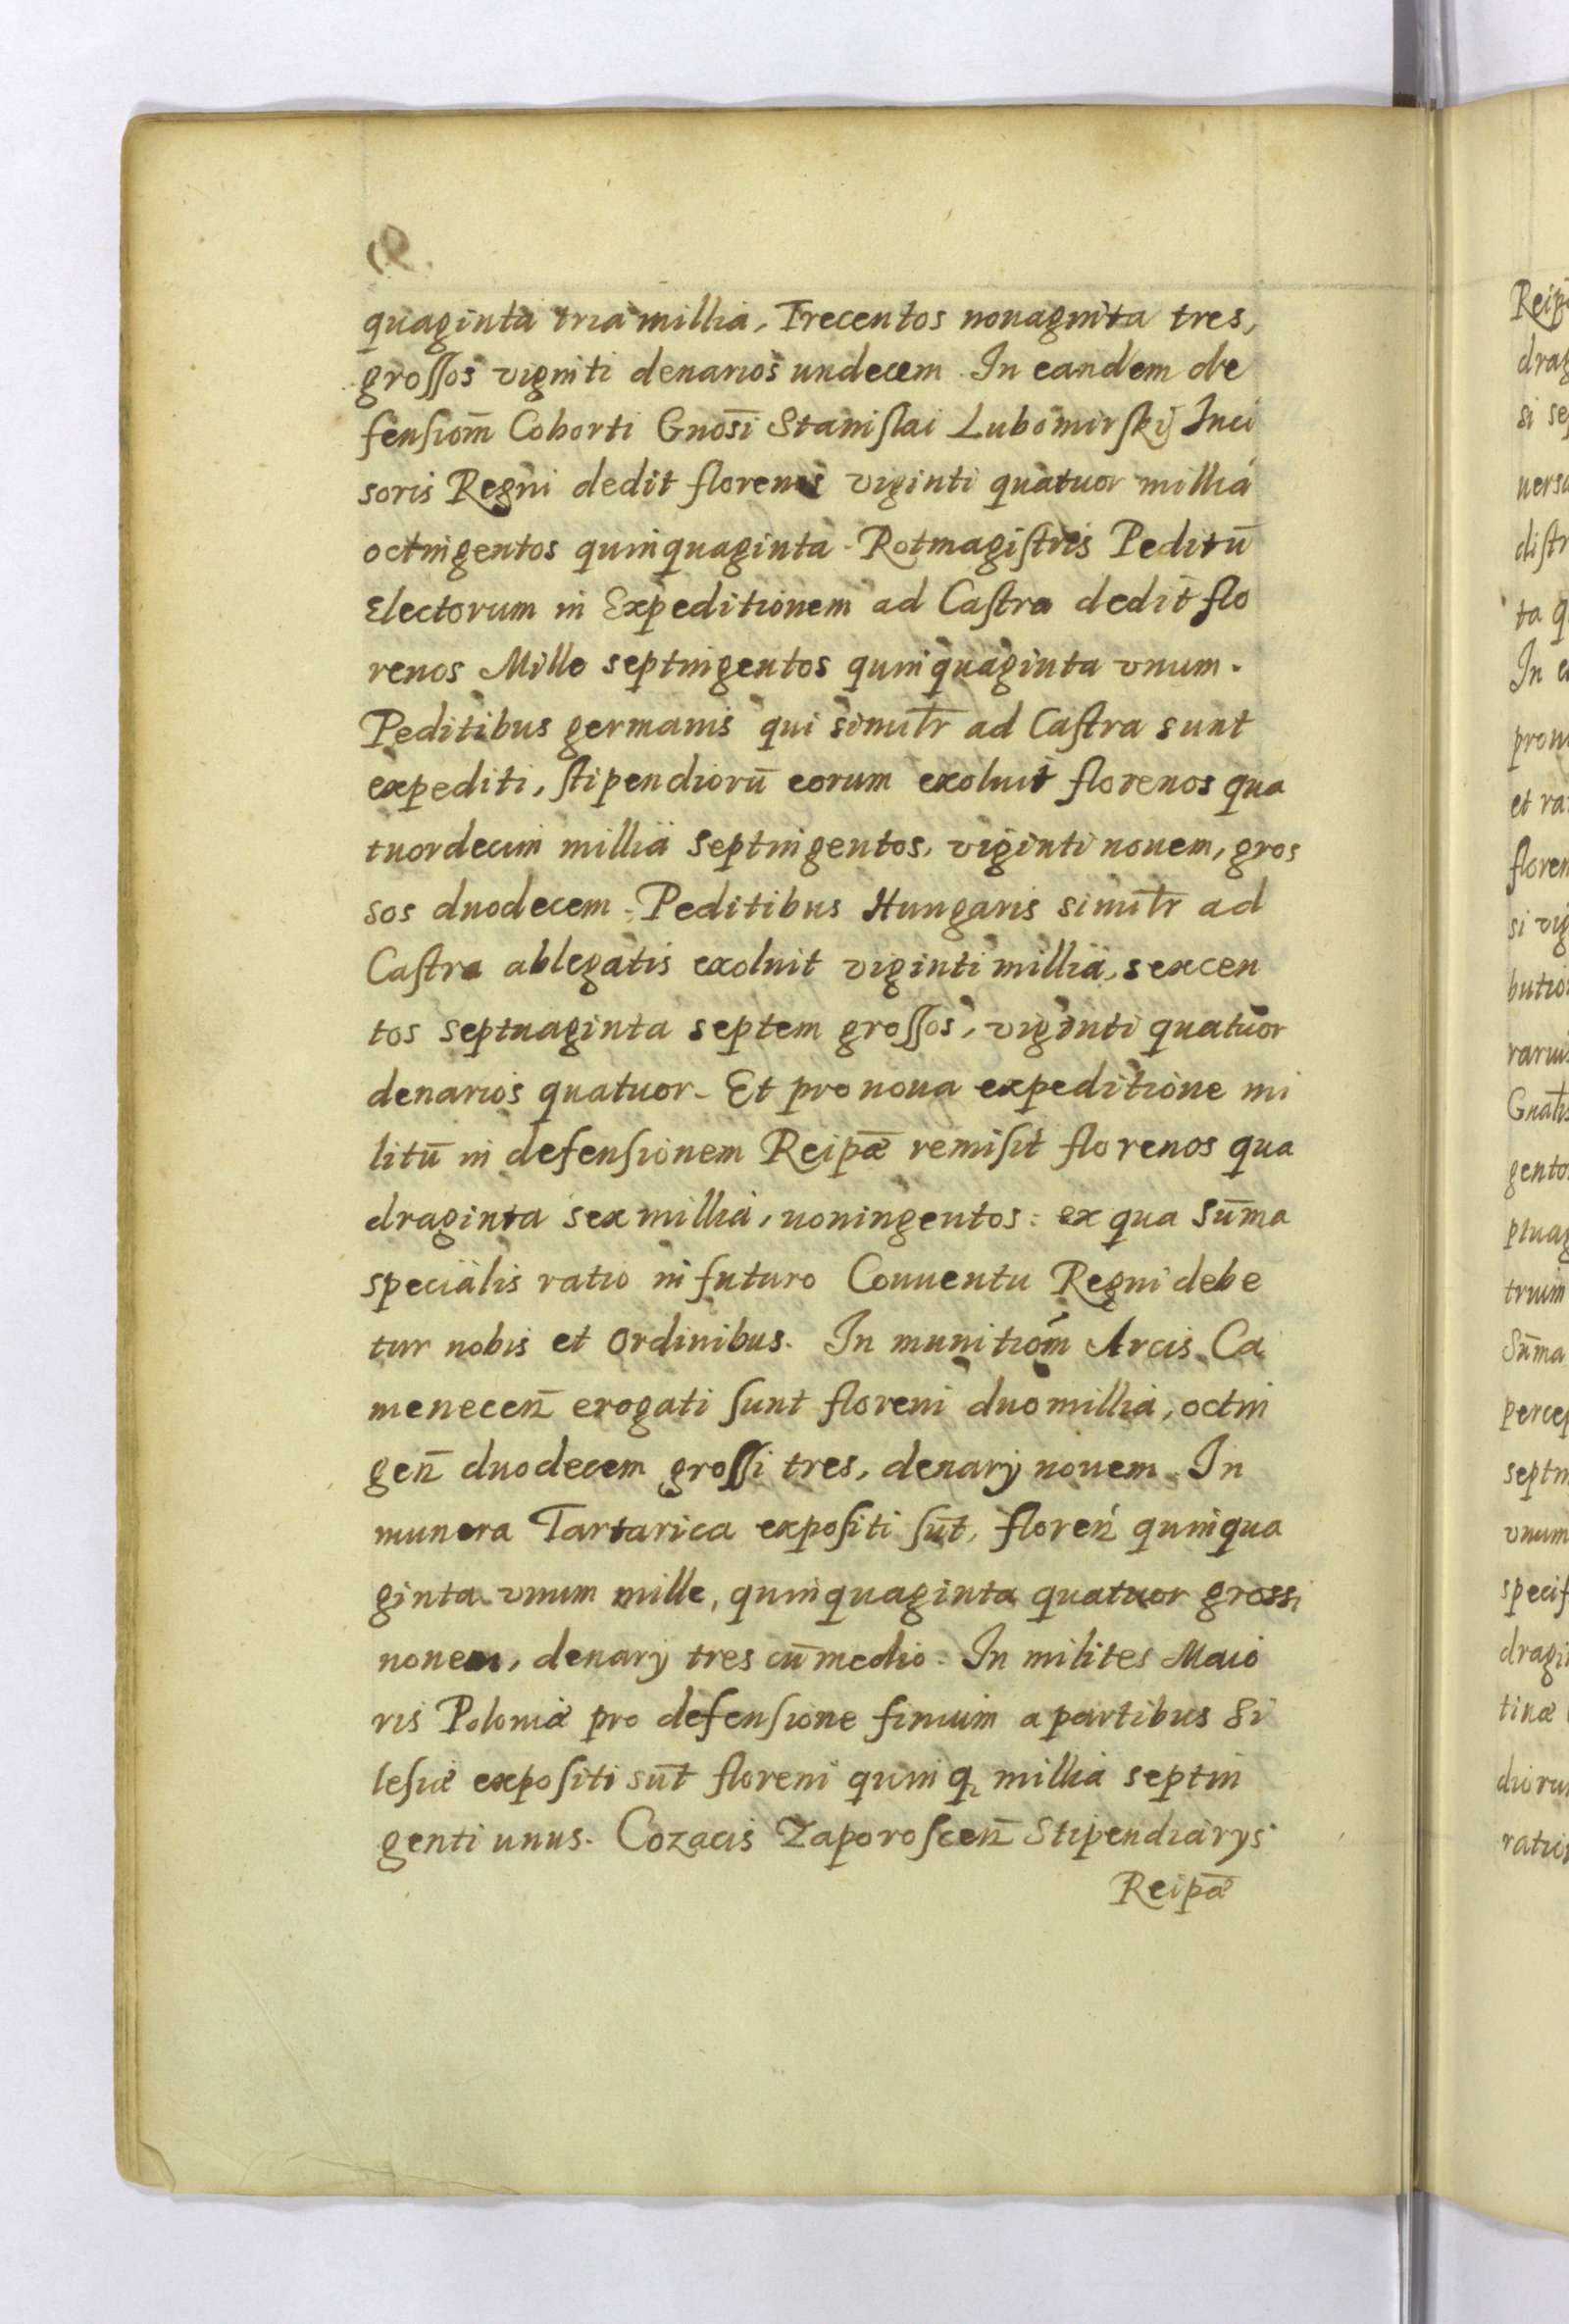 quaginta tria millia, Trecentos nonaginta tres,
groſſos viginti denarios undecem. In eandem de
fenſiom̄ Cohorti Gnosī Staniſlai Lubomirſkij Inci
soris Regni dedit florenos viginti quatuor millia
octingentos quinquaginta. Rotmagiſtris Peditū
Electorum in Expeditionem ad Caſtra dedit flo
renos Mille septingentos quinquaginta vnum.
Peditibus germanis qui similr̄ ad Caſtra sunt
expediti, ſtipendiorū eorum exoluit florenos qua
tuordecim millia septingentos, viginti nouem, gros
sos duodecem. Peditibus Hungaris similr̄ ad
Caſtra ablegatis exoluit viginti millia, sexcen
tos septuaginta septem groſſos, viginti quatuor
denarios quatuor. Et pro noua expeditione mi
litū in defenſionem Reipǣ remiſit florenos qua
draginta sex millia, noningentos: ex qua sūma
specialis ratio in futuro Conuentu Regni debe
tur nobis et Ordinibus. In munitiom̄ Arcis Ca
menecen̄ erogati ſunt floreni duo millia, octin
gen̄ duodecem groſſi tres, denarij nouem. In
munera Tartarica expoſiti ſūt, floren̄ quinqua
ginta vnum mille, quinquaginta quatuor grossi
nouem, denarij tres cū medio. In milites Maio
ris Poloniæ pro defenſione finium a partibus Si
leſiæ expoſiti sūt floreni quinq₃ millia septin
genti unus. Cozacis Zaporoſcen̄ Stipendiarijs
Reipǣ